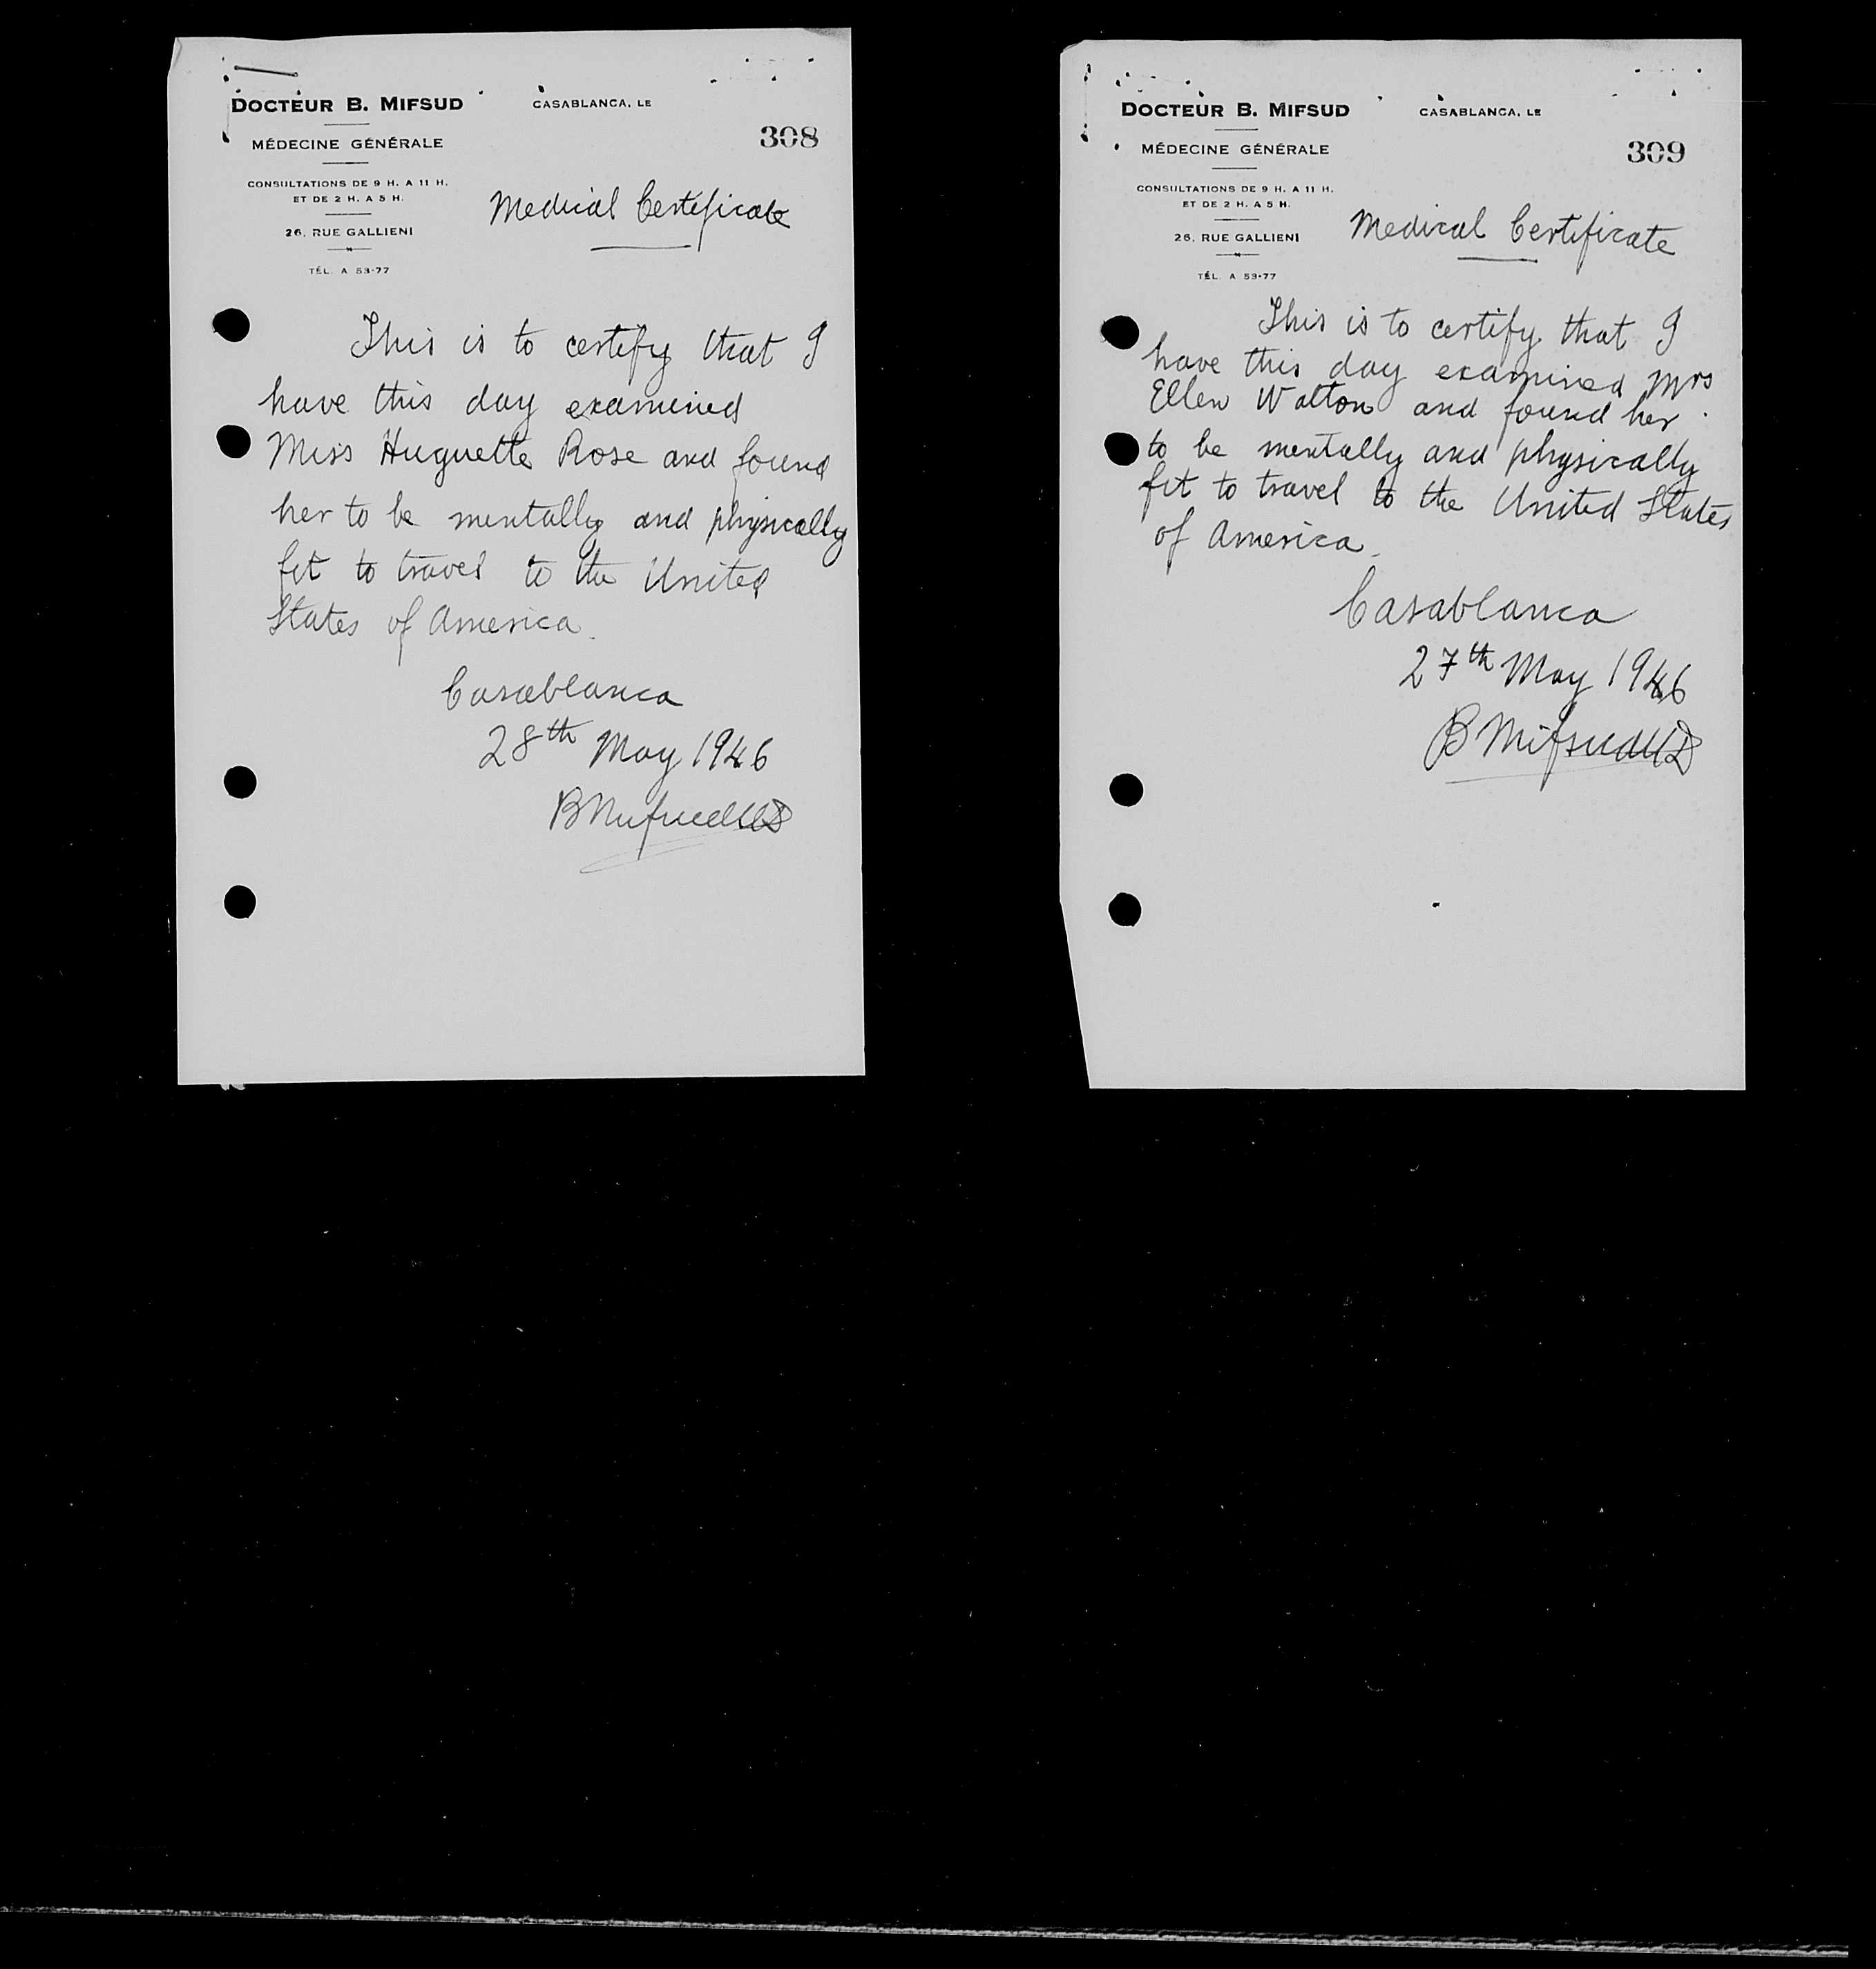 DOCTEUR B. MIFSUD
CASABLANCA, LE
308
MÉDECINE GÉNÉRALE
CONSULTATIONS DE 9 H. A 11 H.
ET DE 2 H. A 5 H.
26, RUE GALLIENI
TÉL. A 53-77
Medical Certificate
This is to certify that I
have this day examined
Miss Huguette Rose and found
her to be mentally and physically
fit to travel to the United
States of America.
Casablanca
28th May 1946
B Mifsud MD
DOCTEUR B. MIFSUD
CASABLANCA, LE
309
MÉDECINE GÉNÉRALE
CONSULTATIONS DE 9 H. A 11 H.
ET DE 2 H. A 5 H.
26, RUE GALLIENI
TÉL. A 53-77
Medical Certificate
This is to certify that I
have this day examined Mrs
Ellen Walton and found her
to be mentally and physically
fit to travel to the United States
of America.
Casablanca
27th May 1946
B Mifsud MD